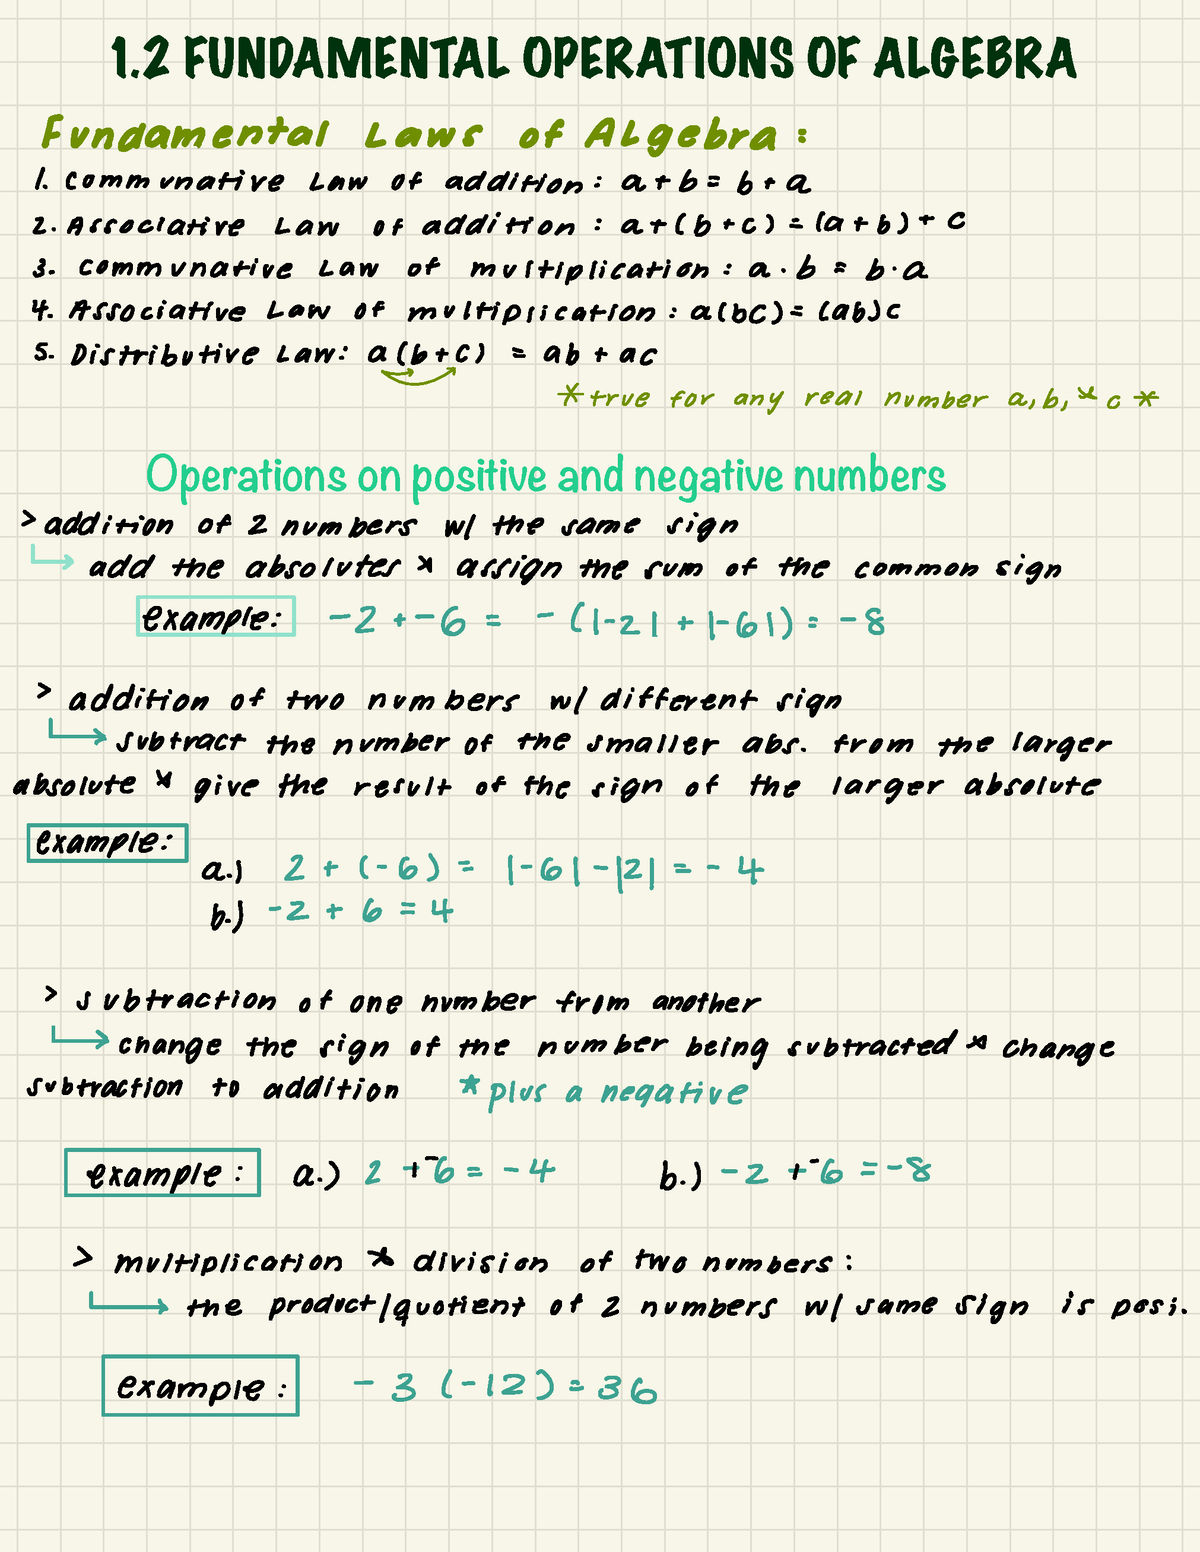 1.2 FUNDAMENTAL OPERATIONS OF ALGEBRA
Fundamental Laws of Algebra:
1. Communative Law of addition: a + b = b + a
2. Associative Law of addition: a + (b + c) = (a + b) + c
3. Communative Law of multiplication: a · b = b · a
4. Associative Law of multiplication: a(bc) = (ab)c
5. Distributive Law: a(b + c) = ab + ac
*true for any real number a, b, & c *
Operations on positive and negative numbers
> addition of 2 numbers w/ the same sign
↳ add the absolutes & assign the sum of the common sign
example: -2 + -6 = -(|-2| + |-6|) = -8
> addition of two numbers w/ different sign
↳ subtract the number of the smaller abs. from the larger
absolute & give the result of the sign of the larger absolute
example:
a.) 2 + (-6) = |-6| - |2| = -4
b.) -2 + 6 = 4
> subtraction of one number from another
↳ change the sign of the number being subtracted & change
subtraction to addition *plus a negative
example: a.) 2 + -6 = -4 b.) -2 + -6 = -8
> multiplication & division of two numbers:
↳ the product/quotient of 2 numbers w/ same sign is posi.
example: -3 (-12) = 36